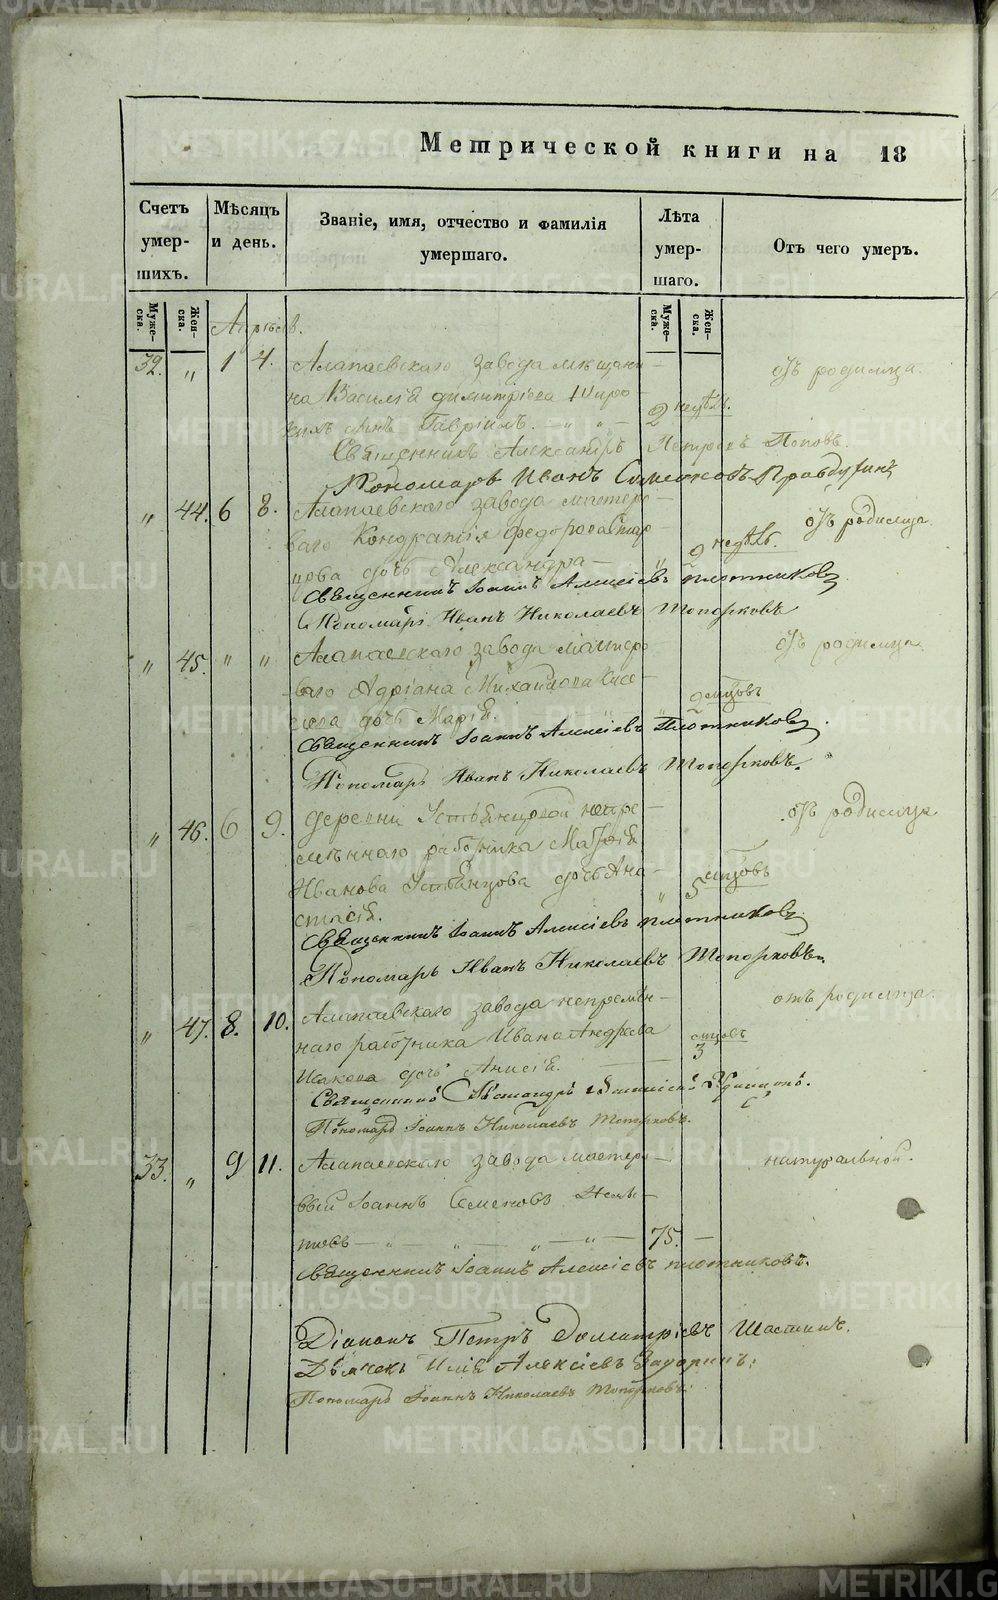 Метрической книги на 18
Счетъ умер-шихъ.
Мѣсяцъ и день.
Званіе, имя, отчество и фамилія умершаго.
Лѣта умер-шаго.
Отъ чего умеръ.
Муже-ска.
Жен-ска.
Муже-ска.
Жен-ска.
Апрѣль.
32. „ 1 4. Алапаевскаго завода мѣщани- отъ родимца.
на Василія Димитріева
сынъ Гавріилъ. 2 недѣль.
Священникъ Александръ Петровъ Поповъ.
Пономарь Иванъ Симеоновъ Правдухинъ
„ 44. 6 8. Алапаевскаго завода мастеро- отъ родимца.
ваго Кондратія Федорова
дочь Александра 2 недѣль.
Священникъ Іоаннъ Алексіевъ Плотниковъ
Пономарь Иванъ Николаевъ Топорковъ
„ 45. „ „ Алапаевскаго завода мастеро- отъ родимца.
ваго Адріана Михайлова Кисе-
лева дочь Марія. мѣсяцовъ
Священникъ Іоаннъ Алексіевъ Плотниковъ.
Пономарь Иванъ Николаевъ Топорковъ.
„ 46. 6 9. Деревни Устьянцовой непре- отъ родимца
мѣннаго работника Матвѣя
Иванова Устьянцова дочь Ана- 5 мѣсяцовъ
стасія.
Священникъ Іоаннъ Алексіевъ Плотниковъ
Пономарь Иванъ Николаевъ Топорковъ.
„ 47. 8. 10. Алапаевскаго завода непремѣн- отъ родимца.
наго работника Ивана Андреева
Исакова дочь Анисія. 3 мѣсяцовъ
Священникъ Александръ
Пономарь Іоаннъ Николаевъ Топорковъ.
33. „ 9 11. Алапаевскаго завода мастеро- натуральной.
вый Іоаннъ Семеновъ
75.
Священникъ Іоаннъ Алексіевъ Плотниковъ.
Діаконъ Петръ Димитріевъ Шастинъ.
Дьячекъ Илія Алексіевъ
Пономарь Іоаннъ Николаевъ Топорковъ.
METRIKI.GASO-URAL.RU